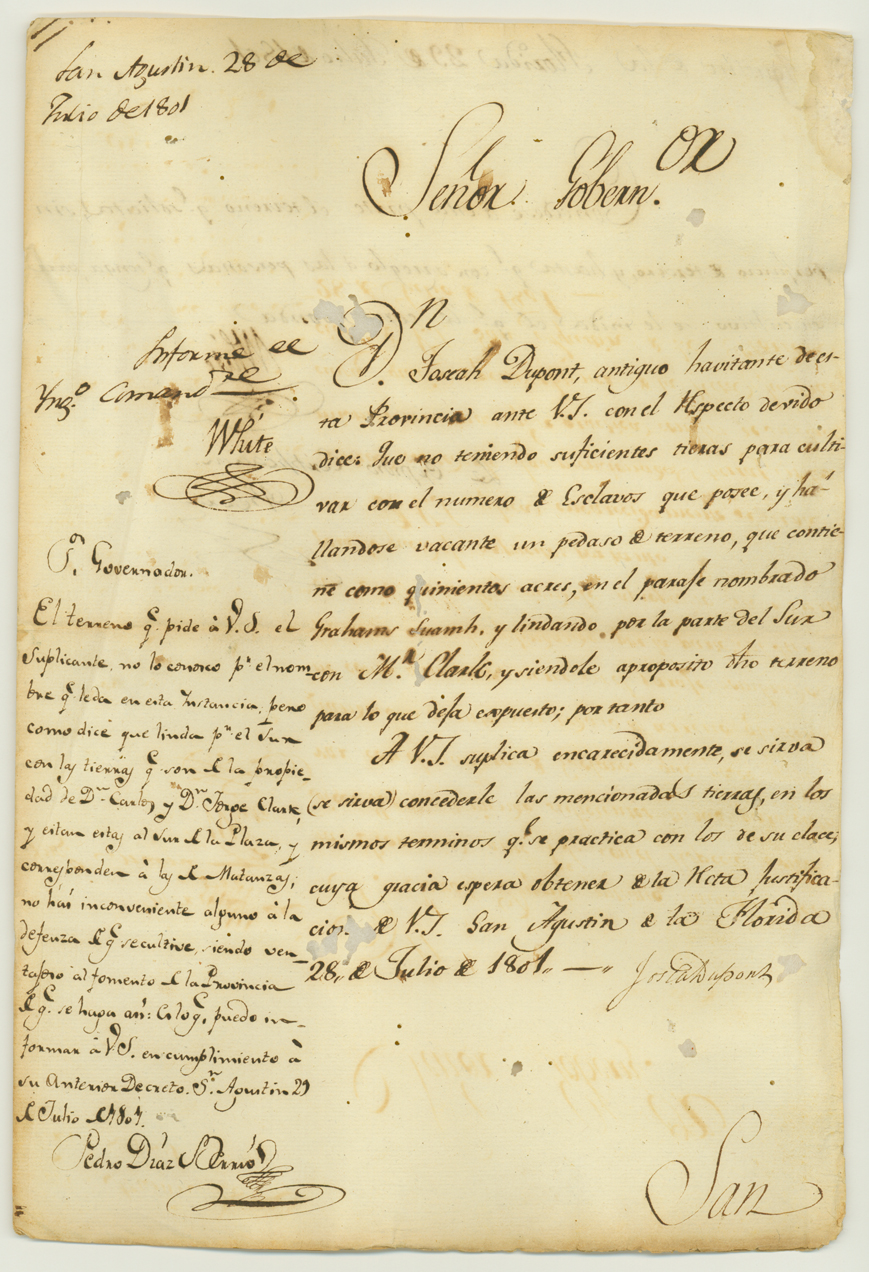 San Agustin. 28 de
Julio de 1801
Señor Gobern.or
Informe el
Yng.o Comand.te
White
Dn
D. Josiah Dupont, antiguo havitante de es-
ta Provincia ante V.S. con el Respecto devido
dice: Que no teniendo suficientes tierras para culti-
var con el numero de Esclavos que posee, y ha-
llandose vacante un pedaso de terreno, que contie-
ne como quinientos acres, en el paraje nombrado
Grahams Suamh, y lindando por la parte del Sur
con M.r Clark, y siendole aproposito dho terreno
para lo que deja expuesto; por tanto
A V.S. suplica encarecidamente, se sirva
(se sirva) concederle las mencionadas tierras, en los
mismos terminos q.e se practica con los de su clace;
cuya gracia espera obtener de la Recta Justifica-
cion. de V.S. San Agustin de la Florida
28,, de Julio de 1801,, — ,,
Josiah Dupont
S.or Governador.
El terreno q.e pide à V.S. el
Suplicante, no lo conosco p.r el nom-
bre q.e le da en esta Instancia, pero
como dice que linda p.r el Sur
con las tierras q.e son de la propie-
dad de D.n Carlos y D.n Jorge Clark,
y estan estas al Sur de la Plaza, y
corresponden à las de Matanzas;
no hai inconveniente alguno à la
defenza de q.e se cultive, siendo ven-
tajoso al fomento de la Provincia
de q.e se haga asi: Es lo q.e puedo in-
formar à V.S. en cumplimiento à
su Anterior Decreto. S.n Agustin 29
de Julio de 1801.
Pedro Diaz Berrio
San